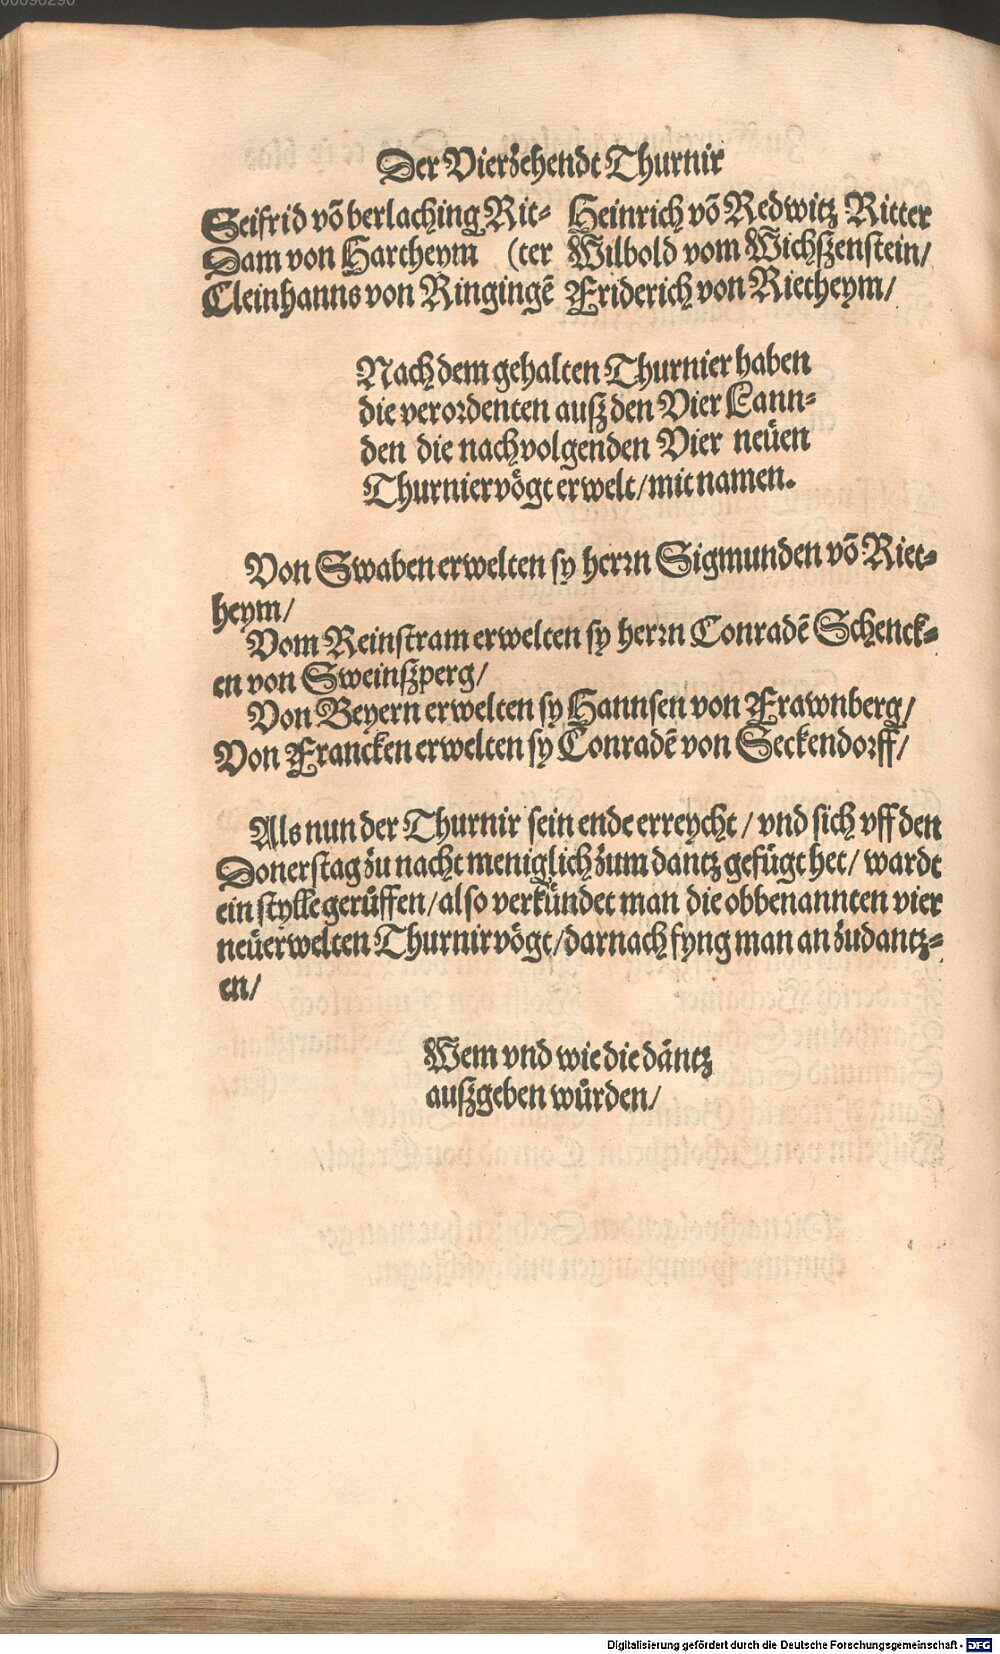 Der Vierzehendt Thurnir
Seifrid vō berlaching Rit-
Dam von Hartheym (ter
Cleinhanns von Ringingē
Heinrich vō Redwitz Ritter
Wilbold vom Wichßenstein/
Friderich von Rietheym/
Nach dem gehalten Thurnier haben
die verordenten außz den Vier Lann-
den die nachvolgenden Vier neüen
Thurniervögt erwelt/ mit namen.
Von Swaben erwelten sy herrn Sigmunden vō Riet-
heym/
Vom Reinstram erwelten sy herrn Conradē Schenck-
en von Sweinßperg/
Von Beyern erwelten sy Hannsen von Frawnberg/
Von Francken erwelten sy Conradē von Seckendorff/
Als nun der Thurnir sein ende erreycht/ vnd sich vff den
Donerstag zu nacht meniglich zum dantz gefügt het/ wardt
ein stylle gerůffen/ also verkündet man die obbenannten vier
neüerwelten Thurnirvögt/ darnach fyng man an zudantz-
en/
Wem vnd wie die däntz
außgeben wůrden/
Digitalisierung gefördert durch die Deutsche Forschungsgemeinschaft - DFG